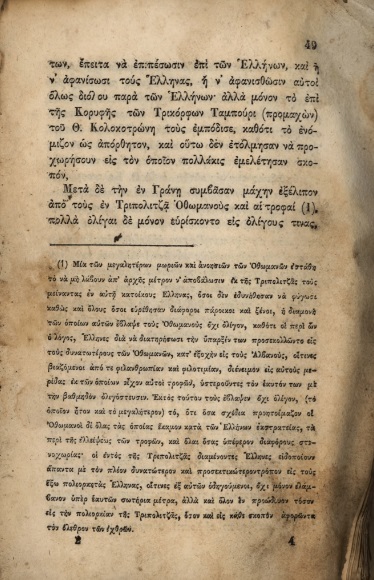 49
των, ἔπειτα νὰ ἐπιπέσωσιν ἐπὶ τῶν Ἑλλήνων, καὶ ἢ
ν’ ἀφανίσωσι τοὺς Ἕλληνας, ἢ ν’ ἀφανισθῶσιν αὐτοὶ
ὅλως διόλου παρὰ τῶν Ἑλλήνων· ἀλλὰ μόνον τὸ ἐπὶ
τῆς Κορυφῆς τῶν Τρικόρφων Ταμπούρι (προμαχὼν)
τοῦ Θ. Κολοκοτρώνη τοὺς ἐμπόδισε, καθότι τὸ ἐνό-
μιζον ὡς ἀπόρθητον, καὶ οὕτω δὲν ἐτόλμησαν νὰ προ-
χωρήσουν εἰς τὸν ὁποῖον πολλάκις ἐμελέτησαν σκο-
πόν.
Μετὰ δὲ τὴν ἐν Γράνῃ συμβᾶσαν μάχην ἐξέλιπον
ἀπὸ τοὺς ἐν Τριπολιτζᾷ Ὀθωμανοὺς καὶ αἱ τροφαὶ (1),
πολλὰ ὀλίγαι δὲ μόνον εὑρίσκοντο εἰς ὀλίγους τινας,
(1) Μία τῶν μεγαλητέρων μωριῶν καὶ ἀνοησιῶν τῶν Ὀθωμανῶν ἐστάθη
τὸ νὰ μὴ λάβουν ἀπ’ ἀρχῆς μέτρον ν’ ἀποβάλωσιν ἐκ τῆς Τριπολιτζᾶς τοὺς
μείναντας ἐν αὐτῇ κατοίκους Ἕλληνας, ὅσοι δὲν ἐδυνήθησαν νὰ φύγωσι
καθὼς καὶ ὅλους ὅσοι εὑρέθησαν διάφοροι πάροικοι καὶ ξένοι, ἡ διαμονὴ
τῶν ὁποίων αὐτῶν ἔβλαψε τοὺς Ὀθωμανοὺς ὄχι ὀλίγον, καθότι οἱ περὶ ὧν
ὁ λόγος, Ἕλληνες διὰ νὰ διατηρήσωσι τὴν ὕπαρξίν των προσεκολλῶντο εἰς
τοὺς δυνατωτέρους τῶν Ὀθωμανῶν, κατ’ ἐξοχὴν εἰς τοὺς Ἀλβανοὺς, οἵτινες
βιαζόμενοι ἀπό τε φιλανθρωπίαν καὶ φιλοτιμίαν, διένειμον εἰς αὐτοὺς με-
ρίδας ἐκ τῶν ὁποίων εἶχον αὐτοὶ τροφῶν, ὑστεροῦντες τὸν ἑαυτόν των μὲ
τὴν βαθμηδὸν ὀλιγόστευσιν. Ἐκτὸς τούτου τοὺς ἔβλαψεν ὄχι ὀλίγον, (τὸ
ὁποῖον ἦτον καὶ τὸ μεγαλήτερον) τό, ὅτι ὅσα σχέδια προητοίμαζον οἱ
Ὀθωμανοὶ δι’ ὅλας τὰς ὁποίας ἔκαμον κατὰ τῶν Ἑλλήνων ἐκστρατείας, τὰ
περὶ τῆς ἐλλείψεως τῶν τροφῶν, καὶ ὅλας ὅσας ὑπέφερον διαφόρους στε-
νοχωρίας· οἱ ἐντὸς τῆς Τριπολιτζᾶς διαμένοντες Ἕλληνες εἰδοποίουν
ἅπαντα μὲ τὸν πλέον δυνατώτερον καὶ προσεκτικώτερον τρόπον εἰς τοὺς
ἔξω πολιορκητὰς Ἕλληνας, οἵτινες ἐξ αὐτῶν ὁδηγούμενοι, ὄχι μόνον ἐλάμ-
βανον ὑπὲρ ἑαυτῶν σωτήρια μέτρα, ἀλλὰ καὶ ὅλον ἐν προώδευον τόσον
εἰς τὴν πολιορκίαν τῆς Τριπολιτζᾶς, ὅσον καὶ εἰς κάθε σκοπὸν ἀφορῶντα
τὸν ὄλεθρον τῶν ἐχθρῶν.
2 4